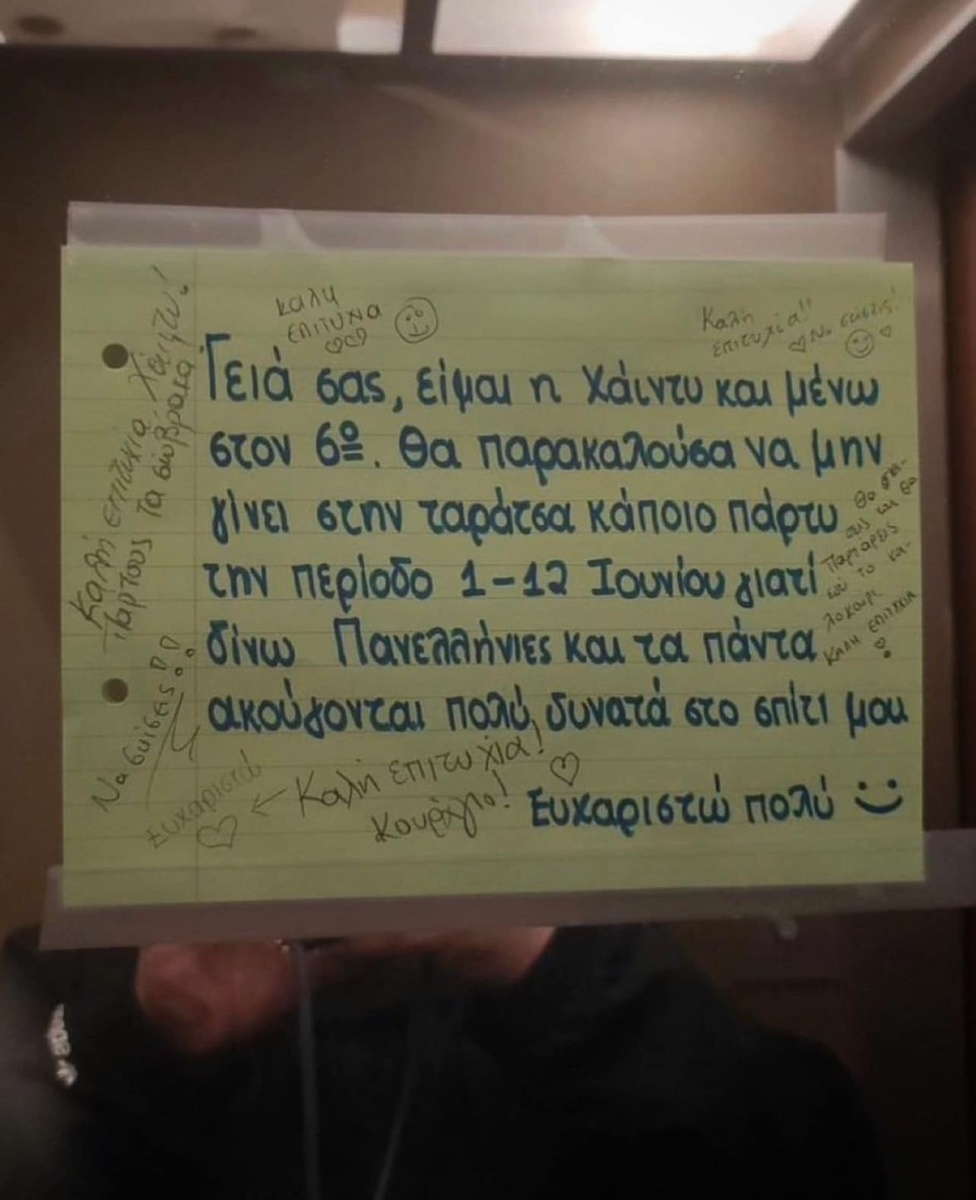 καλη
επιτυχια
Καλή
επιτυχία!!
Να σκίσεις!
Γειά σας, είμαι η Χάιντυ και μένω
στον 6º. Θα παρακαλούσα να μην
γίνει στην ταράτσα κάποιο πάρτυ
την περίοδο 1-12 Ιουνίου γιατί
δίνω Πανελλήνιες και τα πάντα
ακούγονται πολύ δυνατά στο σπίτι μου
Ευχαριστώ πολύ
Καλή επιτυχία!
Κουράγιο!
Ευχαριστώ
Να σκίσεις!!
Καλή επιτυχία Χάιντυ!
Παρτους τα σώβρακα
Θα
και θα
Παρταρεις
το κα-
λοκαιρι
ΚΑΛΗ ΕΠΙΤΥΧΙΑ